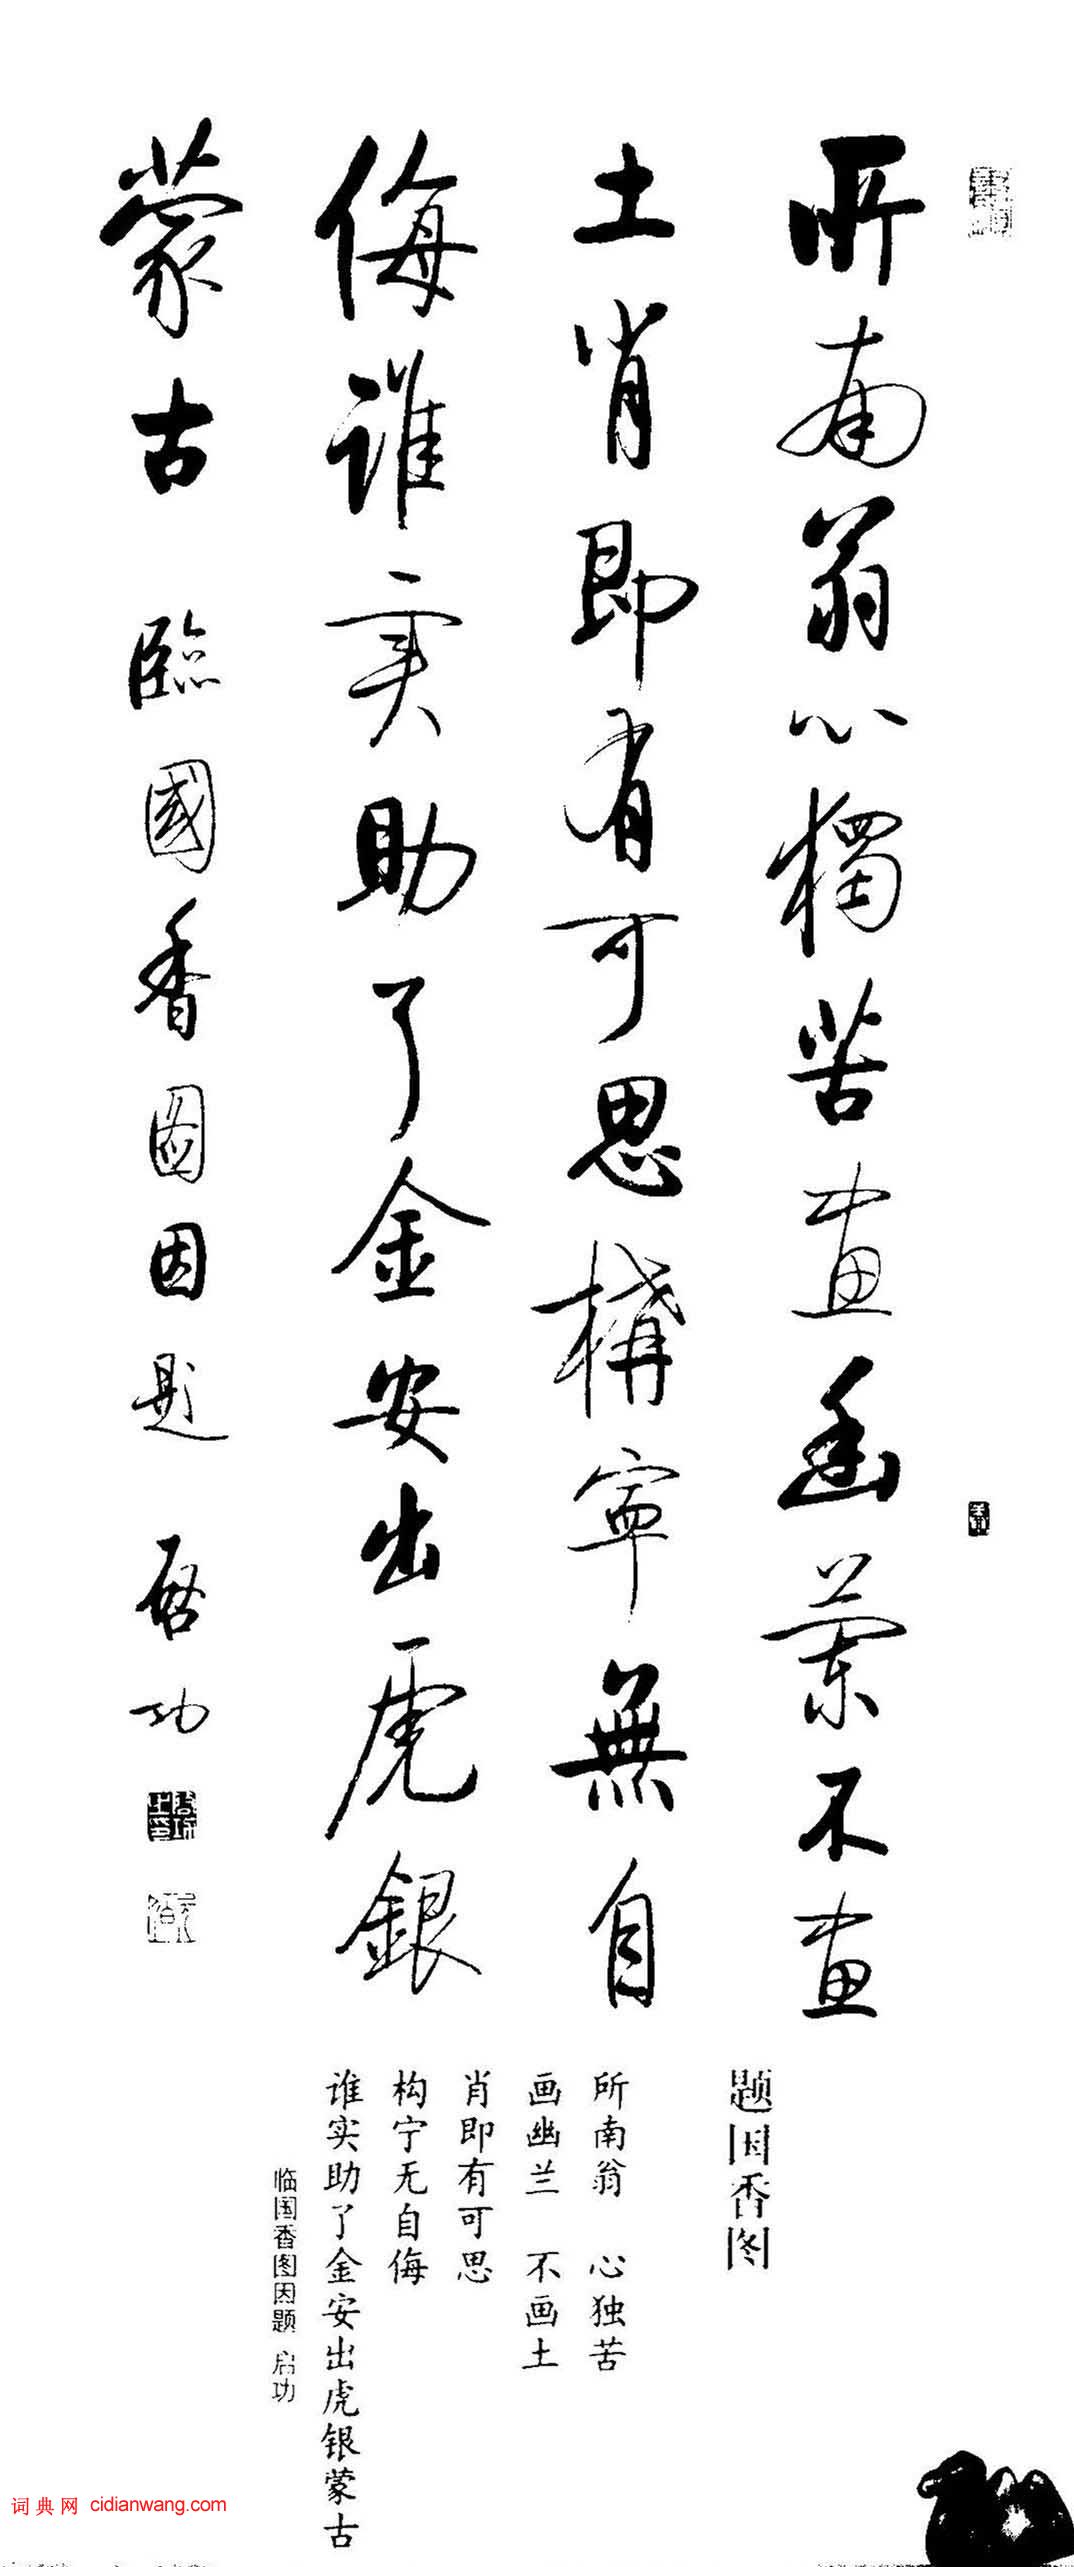 所南翁心獨苦畫幽蘭不畫
土肖即有可思構寧無自
侮誰实助了金安出虎銀
蒙古 臨國香圖因題 啓功
题国香图
所南翁 心独苦
画幽兰 不画土
肖即有可思
构宁无自侮
谁实助了金安出虎银蒙古
临国香图因题 启功
词典网 cidianwang.com